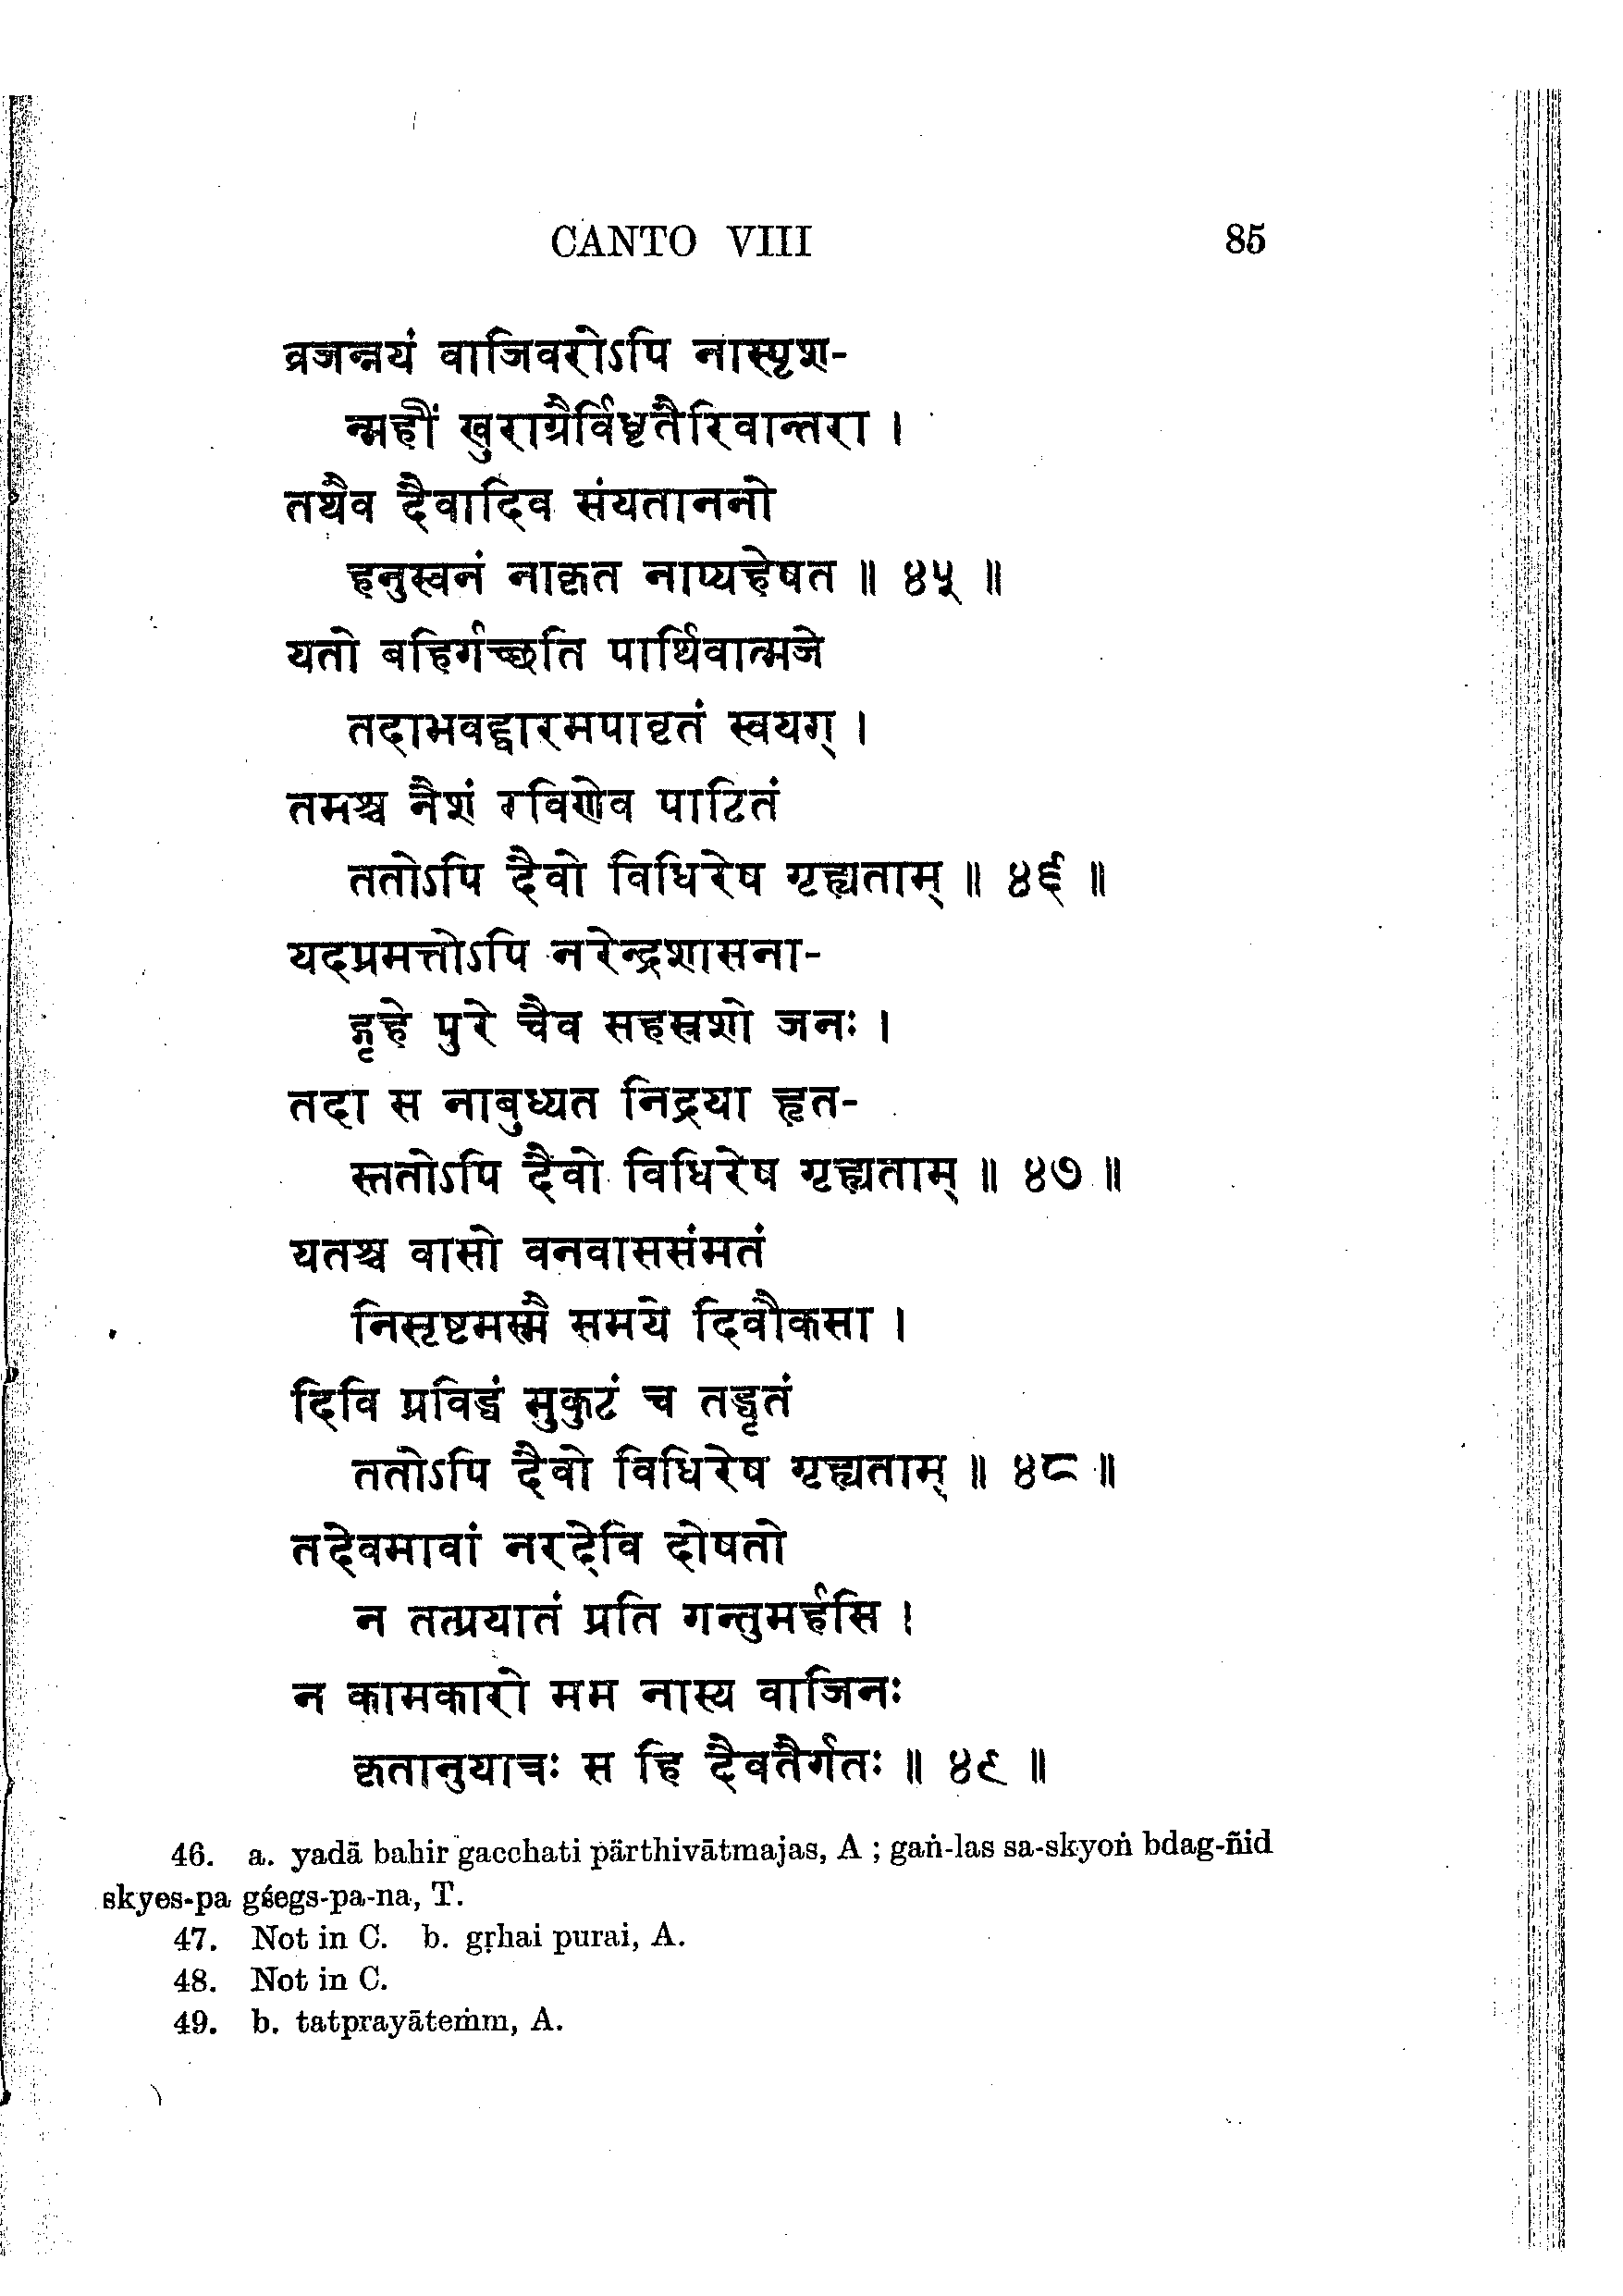 CANTO VIII 85
व्रजन्नयं वाजिवरोऽपि नास्पृश-
न्महीं खुराग्रैर्विधृतैरिवान्तरा ।
तथैव दैवादिव संयताननो
हनुस्वनं नाकृत नाप्यहेषत ॥ ४५ ॥
यतो बहिर्गच्छति पार्थिवात्मजे
तदाभवद्द्वारमपावृतं स्वयम् ।
तमश्च नैशं रविणेव पाटितं
ततोऽपि दैवो विधिरेष गृह्यताम् ॥ ४६ ॥
यदप्रमत्तोऽपि नरेन्द्रशासना-
द्गृहे पुरे चैव सहस्रशो जनः ।
तदा स नाबुध्यत निद्रया हृत-
स्ततोऽपि दैवो विधिरेष गृह्यताम् ॥ ४७ ॥
यतश्च वासो वनवाससंमतं
निसृष्टमस्मै समये दिवौकसा ।
दिवि प्रविद्धं मुकुटं च तद्धृतं
ततोऽपि दैवो विधिरेष गृह्यताम् ॥ ४८ ॥
तदेवमावां नरदेवि दोषतो
न तत्प्रयातं प्रति गन्तुमर्हसि ।
न कामकारो मम नास्य वाजिनः
कृतानुयात्रः स हि दैवतैर्गतः ॥ ४९ ॥
46. a. yadā bahir gacchati pārthivātmajas, A ; gaṅ-las sa-skyoṅ bdag-ñid
skyes-pa gśegs-pa-na, T.
47. Not in C. b. gṛhai purai, A.
48. Not in C.
49. b. tatprayāteṁm, A.